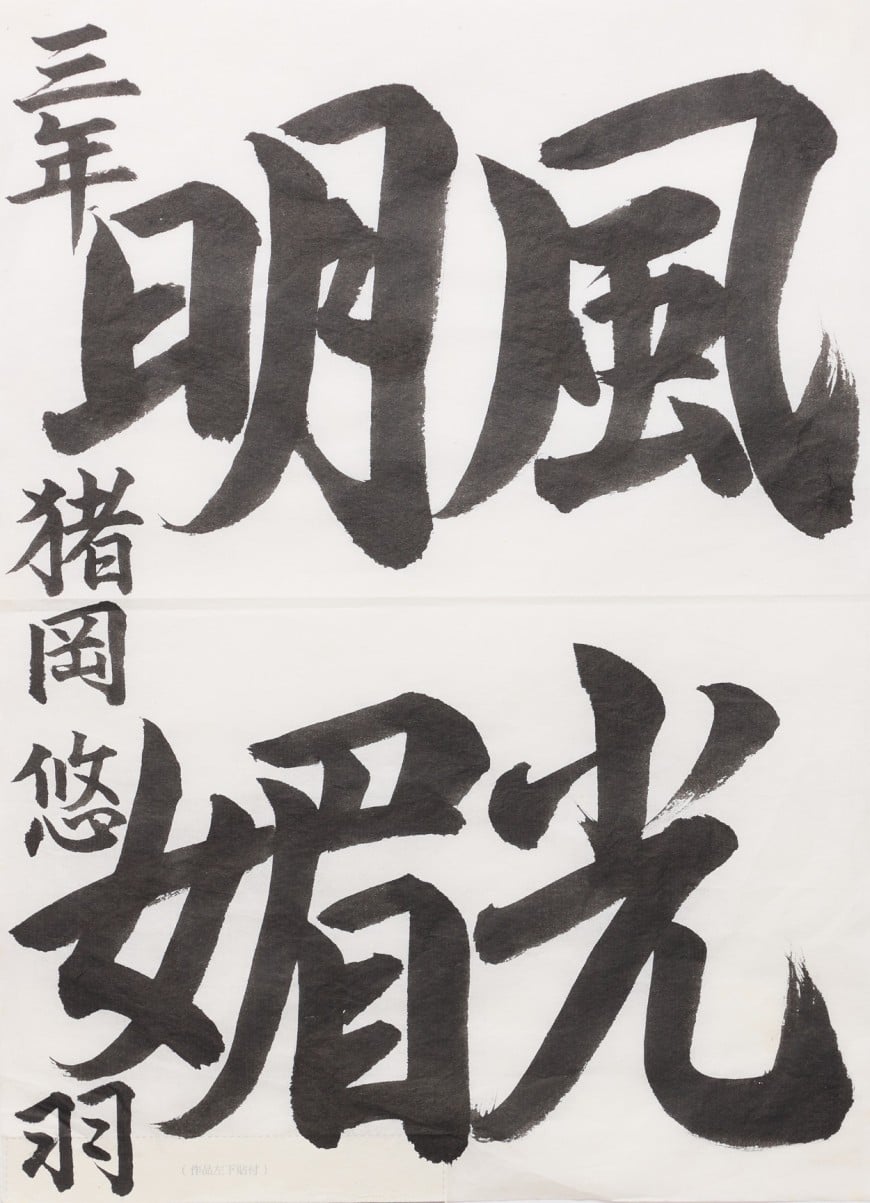 風光
明媚
三年 猪岡悠羽
（作品左下貼付）